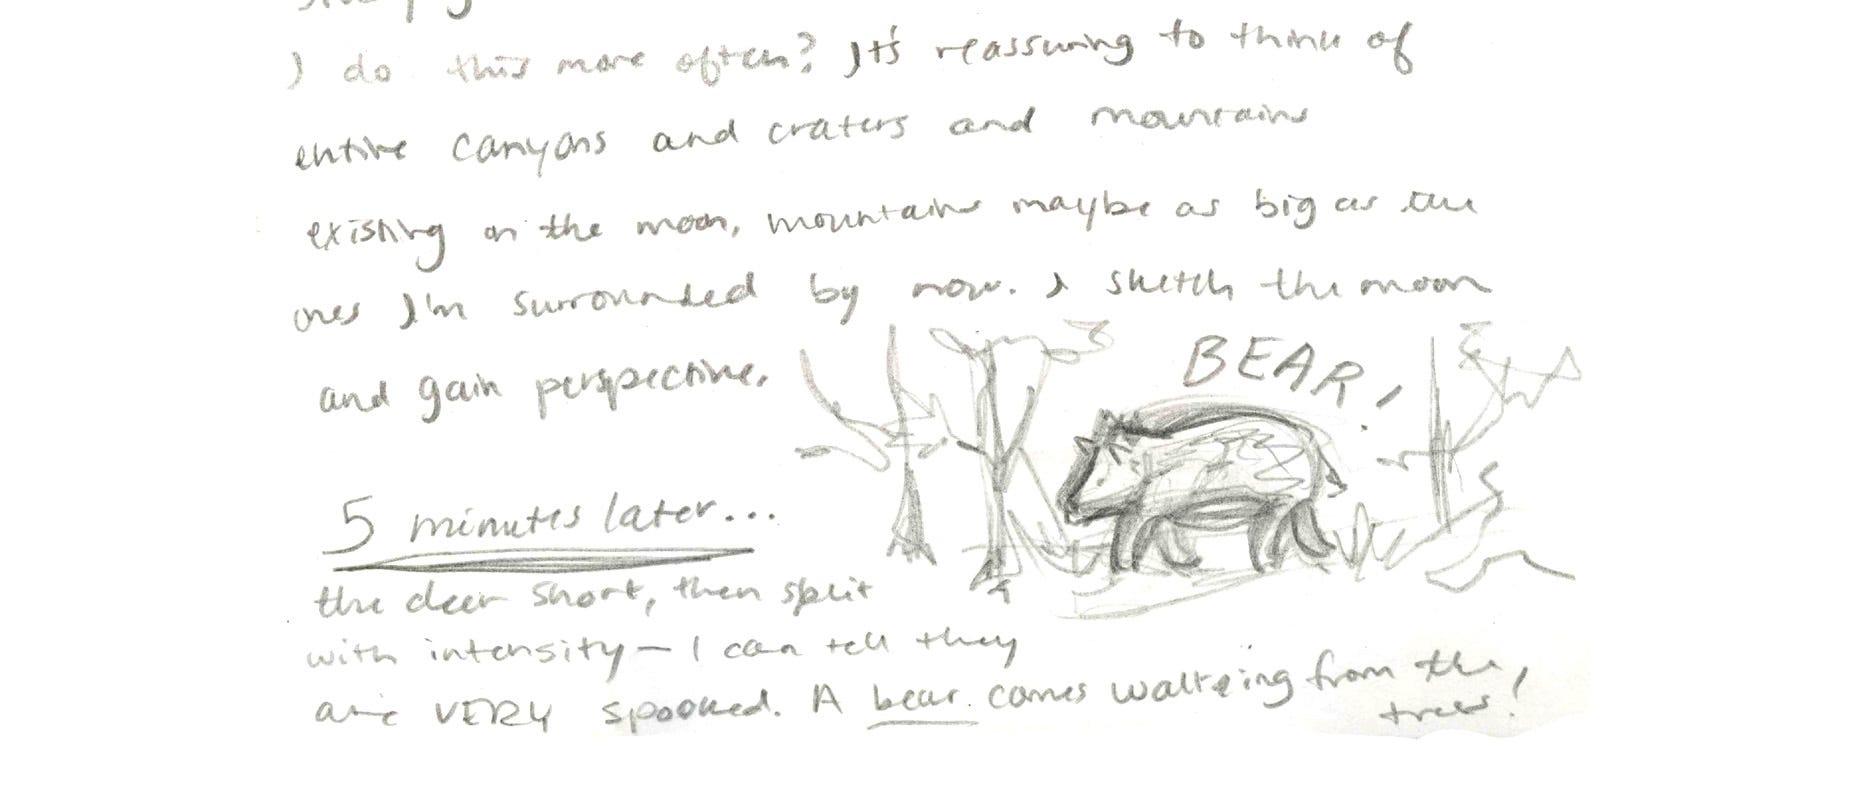 I do this more often? It's reassuring to think of
entire canyons and craters and mountains
existing on the moon, mountains maybe as big as the
ones I'm surrounded by now. I sketch the moon
and gain perspective.
BEAR!
5 minutes later...
the deer snort, then split
with intensity — I can tell they
are VERY spooked. A bear comes waltzing from the
trees!